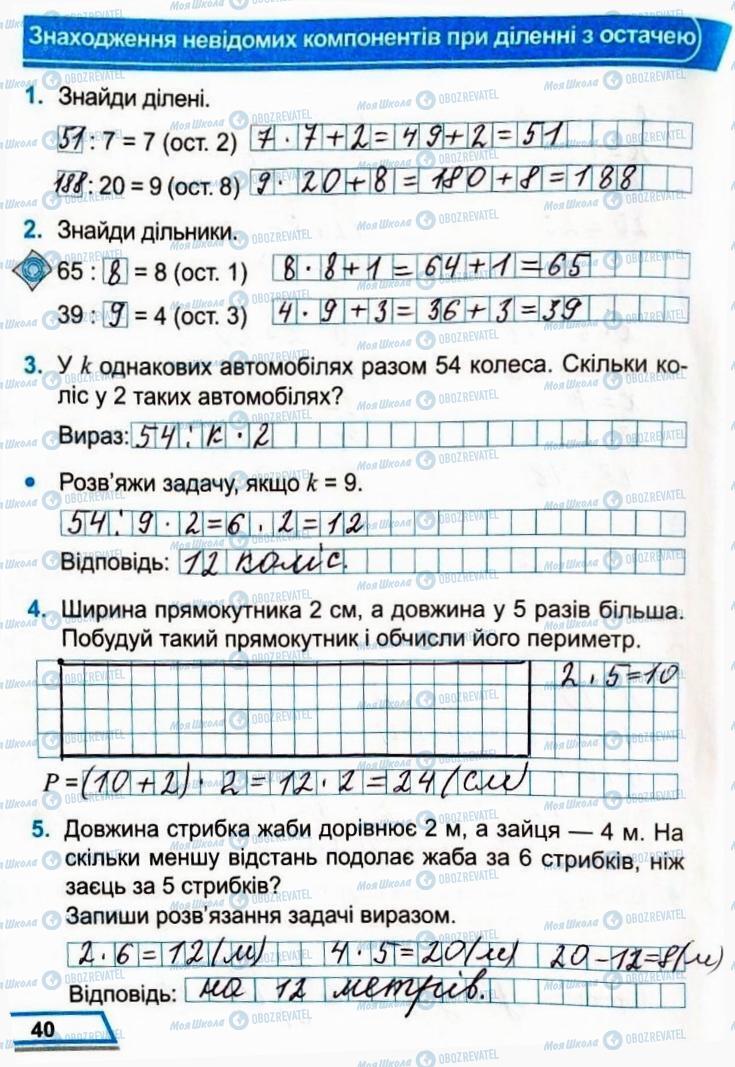 Знаходження невідомих компонентів при діленні з остачею
1. Знайди ділені.
51 : 7 = 7 (ост. 2) 7 · 7 + 2 = 49 + 2 = 51
188 : 20 = 9 (ост. 8) 9 · 20 + 8 = 180 + 8 = 188
2. Знайди дільники.
65 : 8 = 8 (ост. 1) 8 · 8 + 1 = 64 + 1 = 65
39 : 9 = 4 (ост. 3) 4 · 9 + 3 = 36 + 3 = 39
3. У k однакових автомобілях разом 54 колеса. Скільки ко-
ліс у 2 таких автомобілях?
Вираз: 54 : к · 2
• Розв'яжи задачу, якщо k = 9.
54 : 9 · 2 = 6 · 2 = 12
Відповідь: 12 коліс.
4. Ширина прямокутника 2 см, а довжина у 5 разів більша.
Побудуй такий прямокутник і обчисли його периметр.
2 · 5 = 10
P = (10 + 2) · 2 = 12 · 2 = 24 (см)
5. Довжина стрибка жаби дорівнює 2 м, а зайця — 4 м. На
скільки меншу відстань подолає жаба за 6 стрибків, ніж
заєць за 5 стрибків?
Запиши розв'язання задачі виразом.
2 · 6 = 12 (м) 4 · 5 = 20 (м) 20 - 12 = 8 (м)
Відповідь: на 12 метрів.
40